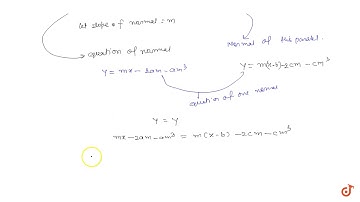 let slope of normal = m
equation of normal
normal of this parabol.
y = mx - 2am - am³
y = m(x-b) - 2cm - cm³
equation of one normal
y = y
mx - 2am - am³ = m(x-b) - 2cm - cm³